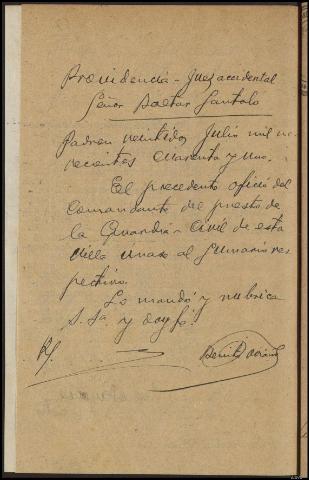 Providencia - Juez accidental
Señor Pastor Santaló
Padrón veintidos Julio mil no-
vecientos cuarenta y uno.
El precedente oficio del
Comandante del puesto de
la Guardia Civil de esta
villa únase al sumario res
pectivo.
Lo mandó y rubrica
S. Sª y doy fé.